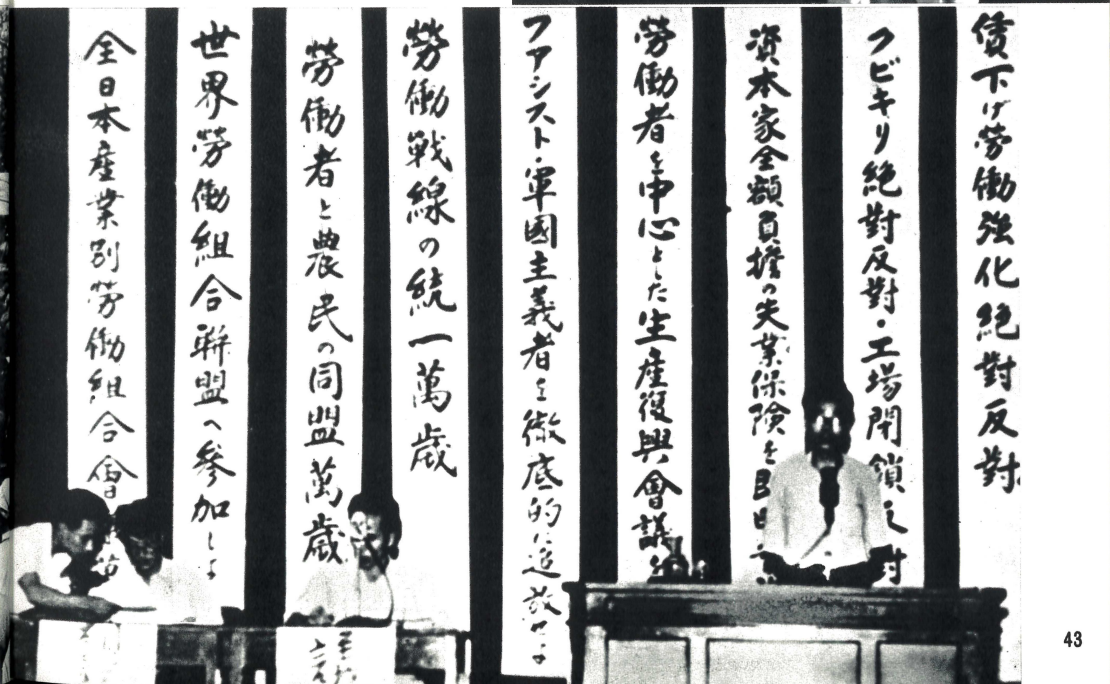 賃下げ労働強化絶對反對
クビキリ絶對反對・工場閉鎖反對
資本家全額負擔の失業保険を即時
勞働者を中心とした生産復興會議を
ファシスト・軍國主義者を徹底的に追放せよ
勞働戦線の統一萬歳
勞働者と農民の同盟萬歳
世界勞働組合聯盟へ参加しよ
全日本産業別勞働組合會
43